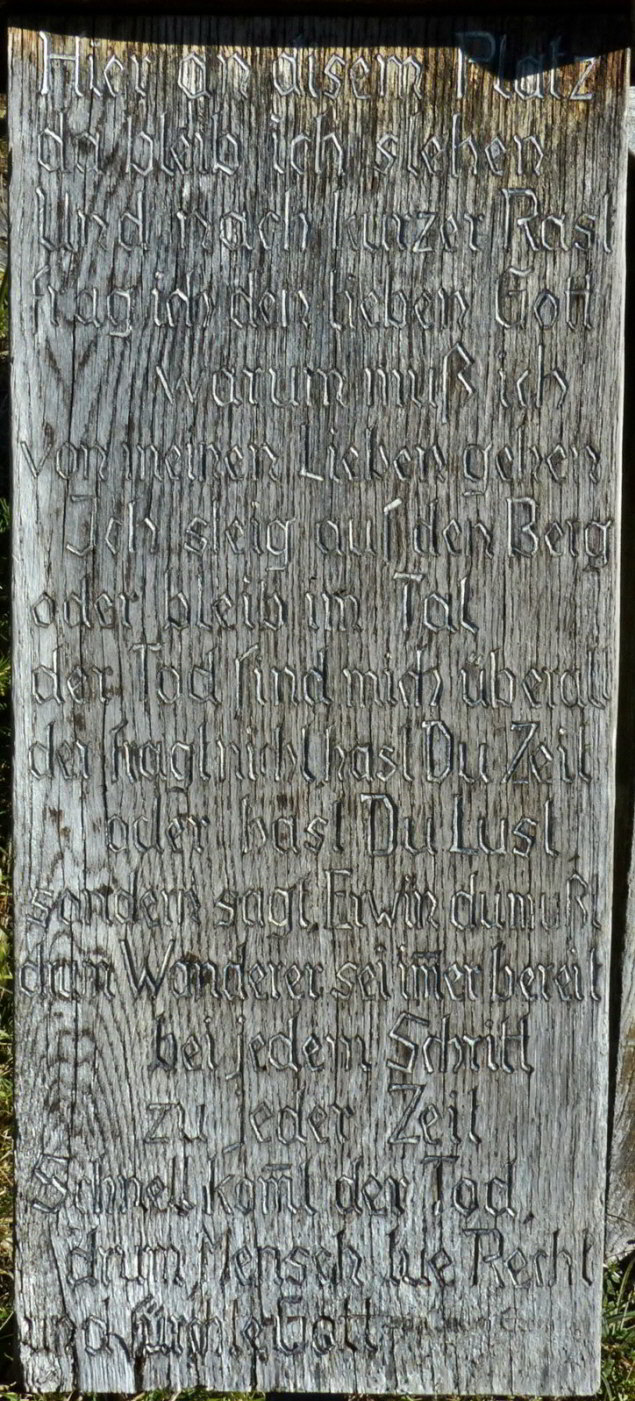 Hier an disem Platz
da bleib ich stehen
Und nach kurzer Rast
frag ich den lieben Gott
warum muß ich
von meinen Lieben gehen
Ich steig auf den Berg
oder bleib im Tal
der Tod find mich überall
der fragt nicht hast Du Zeit
oder hast Du Lust,
sondern sagt, Erwin du mußt
drum Wanderer sei im̅er bereit
bei jedem Schritt
zu jeder Zeit
Schnell kom̅t der Tod,
drum Mensch tue Recht
und fürchte Gott